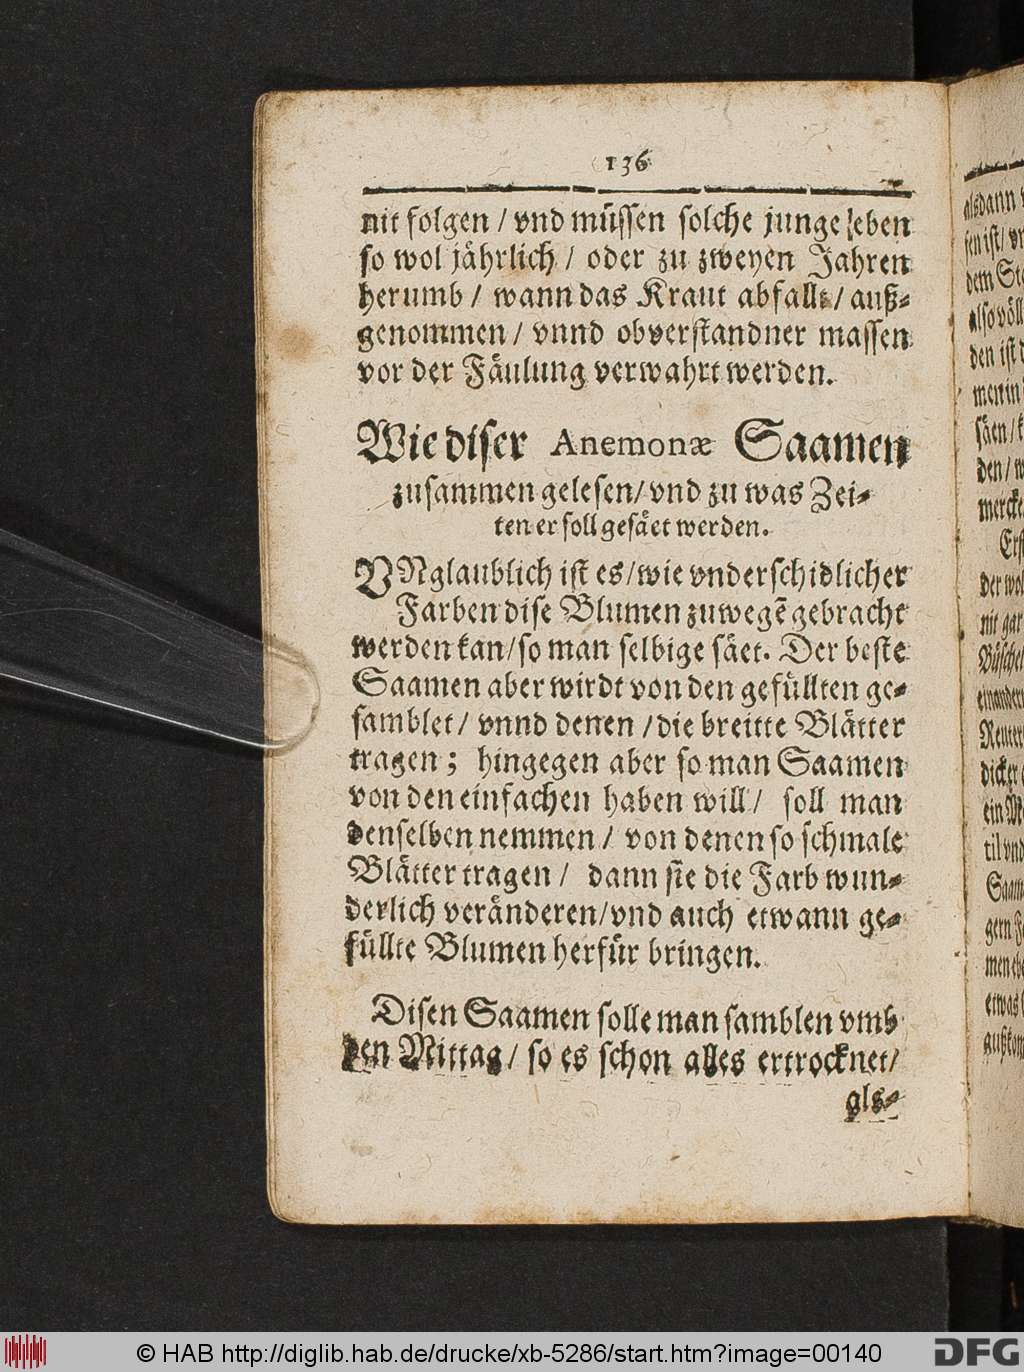 136
nit folgen / vnd müssen solche junge leben
so wol jährlich / oder zu zweyen Jahren
herumb / wann das Kraut abfallt / auß-
genommen / vnnd obverstandner massen
vor der Fäulung verwahrt werden.
Wie diser Anemonæ Saamen
zusammen gelesen / vnd zu was Zei-
ten er soll gesäet werden.
VNglaublich ist es / wie vnderschidlicher
Farben dise Blumen zuwegē gebracht
werden kan / so man selbige säet. Der beste
Saamen aber wirdt von den gefüllten ge-
samblet / vnnd denen / die breitte Blätter
tragen ; hingegen aber so man Saamen
von den einfachen haben will / soll man
denselben nemmen / von denen so schmale
Blätter tragen / dann sie die Farb wun-
derlich veränderen / vnd auch etwann ge-
füllte Blumen herfür bringen.
Disen Saamen solle man samblen vmb
den Mittag / so es schon alles ertrocknet /
als-
alsdann
sen ist /
dem
also
den ist
men in
säen /
den /
mercke
Erst
der wol
nit gar
Büschel
einander
Reuter
dicker
ein
til vnd
Saam
gern
men
etwas
© HAB http://diglib.hab.de/drucke/xb-5286/start.htm?image=00140
DFG